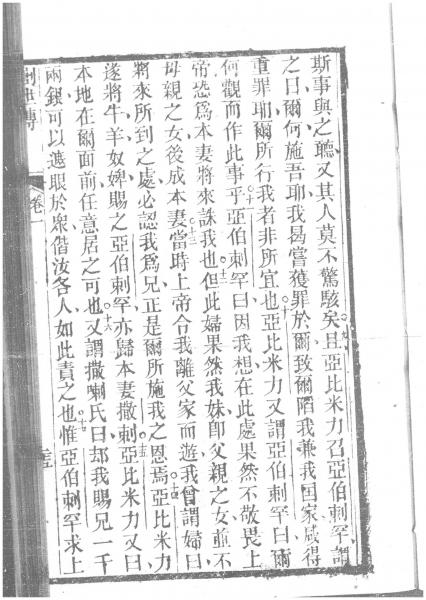 斯事與之聽又其人莫不驚駭矣且亞比米力召亞伯剌罕謂
之曰爾何施吾耶我曷嘗獲罪於爾致爾陷我兼我国家咸得
重罪耶爾所行我者非所宜也亞比米力又謂亞伯剌罕曰爾
何觀而作此事乎亞伯剌罕曰因我想在此處果然不敬畏上
帝恐爲本妻將來誅我也但此婦果然我妹卽父親之女並不
母親之女後成本妻當時上帝令我離父家而遊我曾謂婦曰
將來所到之處必認我爲兄正是爾所施我之恩焉亞比米力
遂將牛羊奴婢賜之亞伯剌罕亦歸本妻撒剌亞比米力又曰
本地在爾面前任意居之可也又謂撒喇氏曰却我賜兄一千
兩銀可以遮眼於衆偕汝各人如此責之也惟亞伯剌罕求上
世傳
卷一